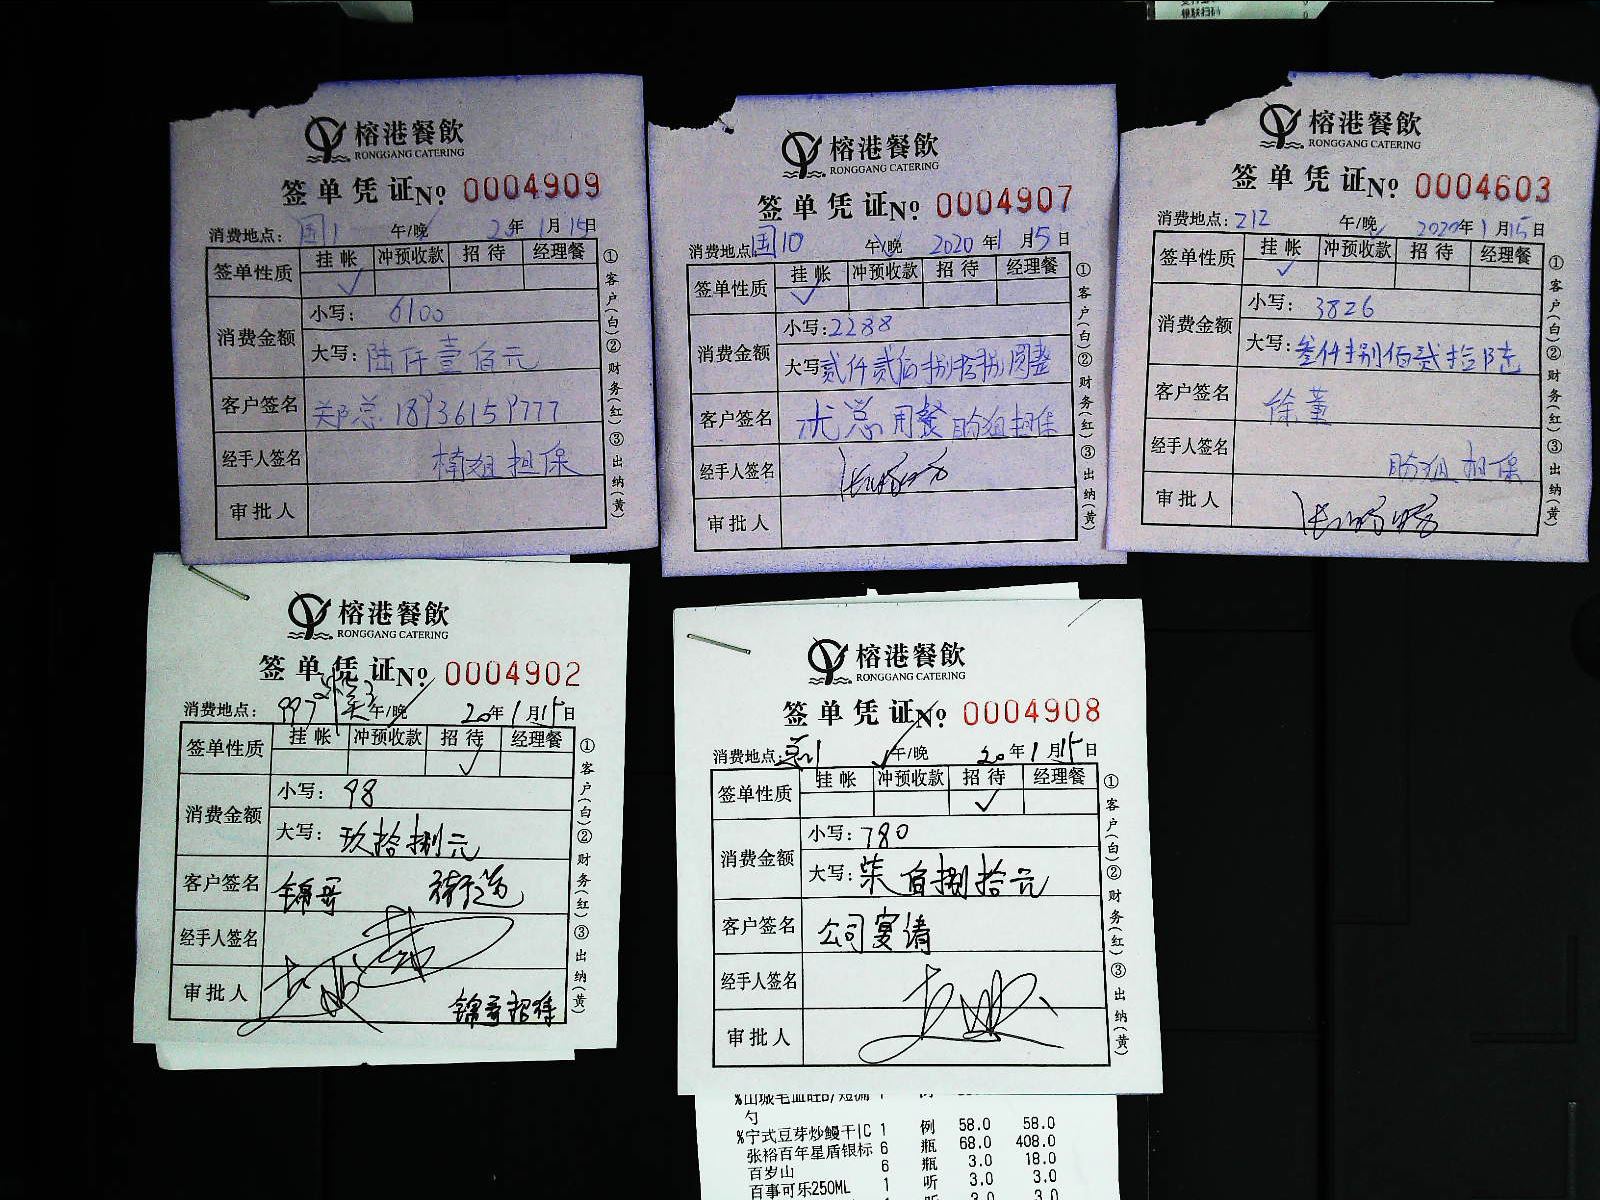 榕港餐飲
RONGGANG CATERING
签单凭证No 0004909
消费地点: 国1 午/晚 2年1月15日
签单性质 挂帐 冲预收款 招待 经理餐
消费金额 小写: 6100
大写: 陆仟壹佰元
客户签名 郑总 18936159777
经手人签名 楠姐担保
审批人
①客户(白)②财务(红)③出纳(黄)
榕港餐飲
RONGGANG CATERING
签单凭证No 0004907
消费地点 国10 午/晚 2020年1月5日
签单性质 挂帐 冲预收款 招待 经理餐
消费金额 小写: 2288
大写 贰仟贰佰捌拾捌圆整
客户签名 尤总用餐 担保
经手人签名
审批人
①客户(白)②财务(红)③出纳(黄)
榕港餐飲
RONGGANG CATERING
签单凭证No 0004603
消费地点: 212 午/晚 2020年1月15日
签单性质 挂帐 冲预收款 招待 经理餐
消费金额 小写: 3826
大写: 叁仟捌佰贰拾陆
客户签名 徐董
经手人签名 担保
审批人
①客户(白)②财务(红)③出纳(黄)
榕港餐飲
RONGGANG CATERING
签单凭证No 0004902
消费地点: 997 午/晚 20年1月15日
签单性质 挂帐 冲预收款 招待 经理餐
消费金额 小写: 98
大写: 玖拾捌元
客户签名 锦哥
经手人签名
审批人 锦哥招待
①客户(白)②财务(红)③出纳(黄)
榕港餐飲
RONGGANG CATERING
签单凭证No 0004908
消费地点: 午/晚 20年1月15日
签单性质 挂帐 冲预收款 招待 经理餐
消费金额 小写: 780
大写: 柒佰捌拾元
客户签名 公司宴请
经手人签名
审批人
①客户(白)②财务(红)③出纳(黄)
勺
%宁式豆芽炒鳗干IC 1 例 58.0 58.0
张裕百年星盾银标 6 瓶 68.0 408.0
百岁山 6 瓶 3.0 18.0
百事可乐250ML 1 听 3.0 3.0